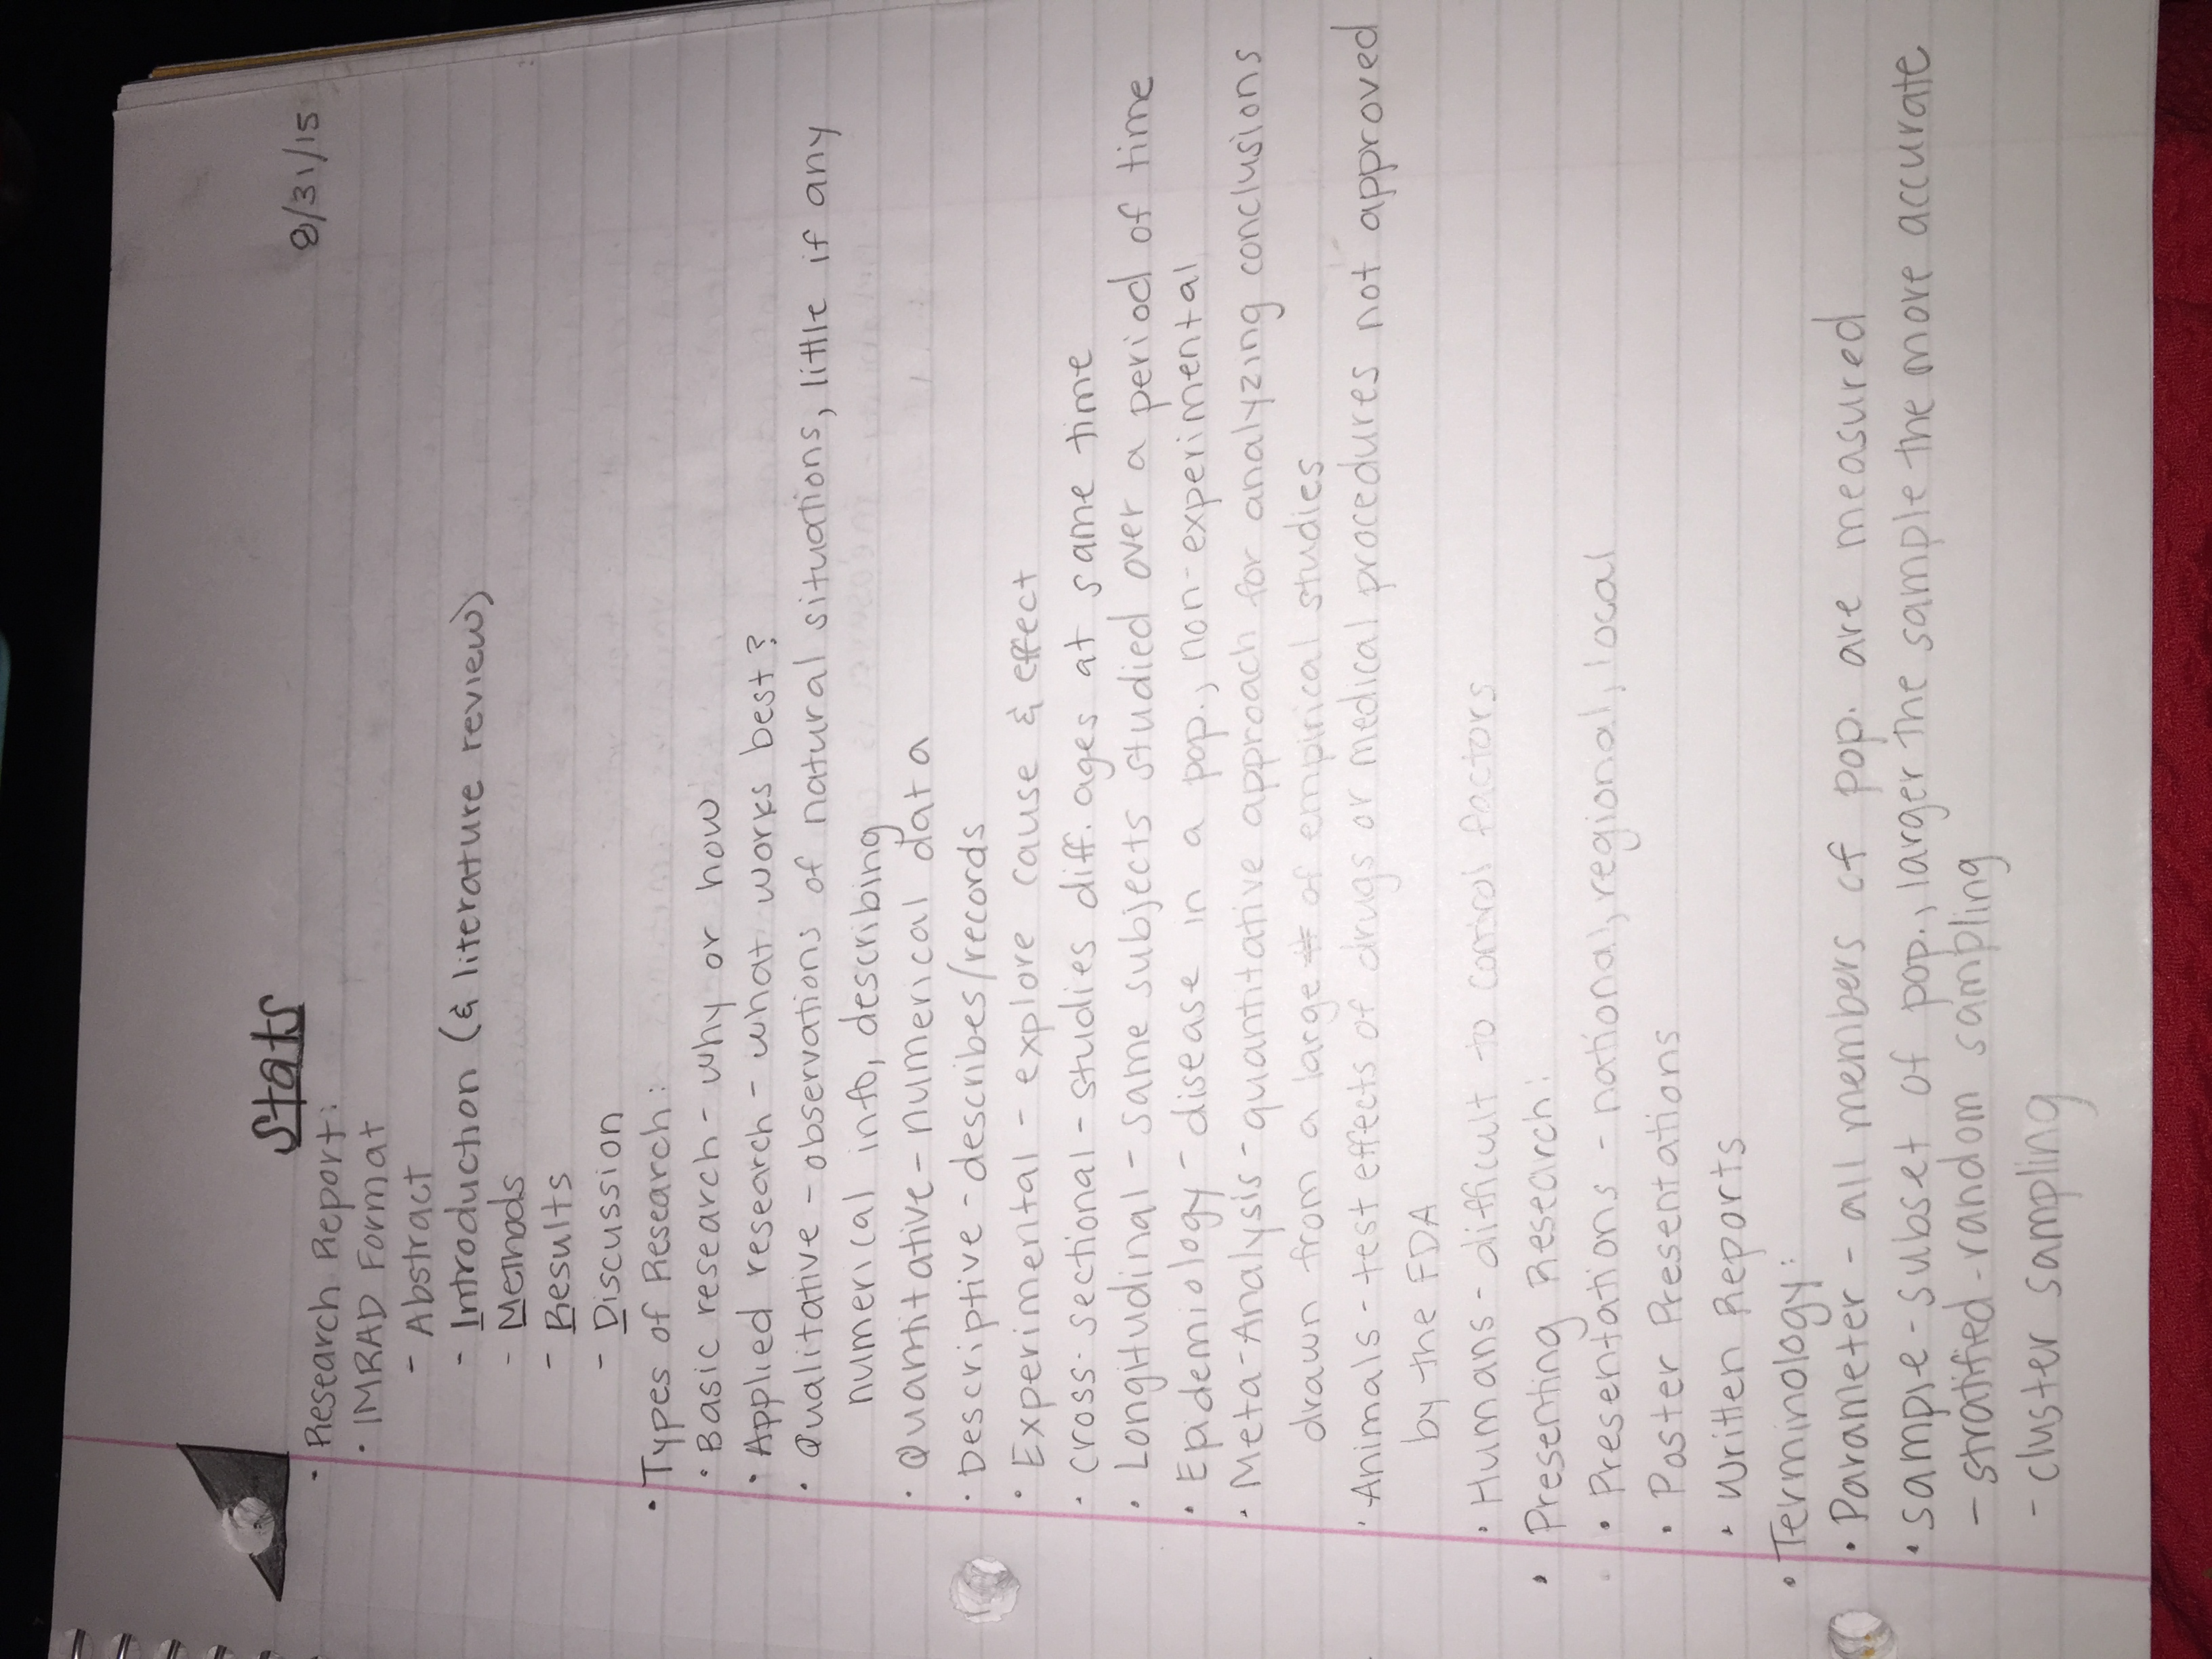 Stats
8/31/15
• Research Report:
• IMRAD Format
- Abstract
- Introduction (& literature review)
- Methods
- Results
- Discussion
• Types of Research:
• Basic research - why or how
• Applied research - what works best?
• Qualitative - observations of natural situations, little if any
numerical info, describing
• Quantitative - numerical data
• Descriptive - describes/records
• Experimental - explore cause & effect
• Cross-sectional - studies diff. ages at same time
• Longitudinal - same subjects studied over a period of time
• Epidemiology - disease in a pop., non-experimental
• Meta-Analysis - quantitative approach for analyzing conclusions
drawn from a large # of empirical studies
• Animals - test effects of drugs or medical procedures not approved
by the FDA
• Humans - difficult to control factors
• Presenting Research:
• Presentations - national, regional, local
• Poster Presentations
• Written Reports
• Terminology:
• Parameter - all members of pop. are measured
• Sample - subset of pop., larger the sample the more accurate
- stratified-random sampling
- cluster sampling